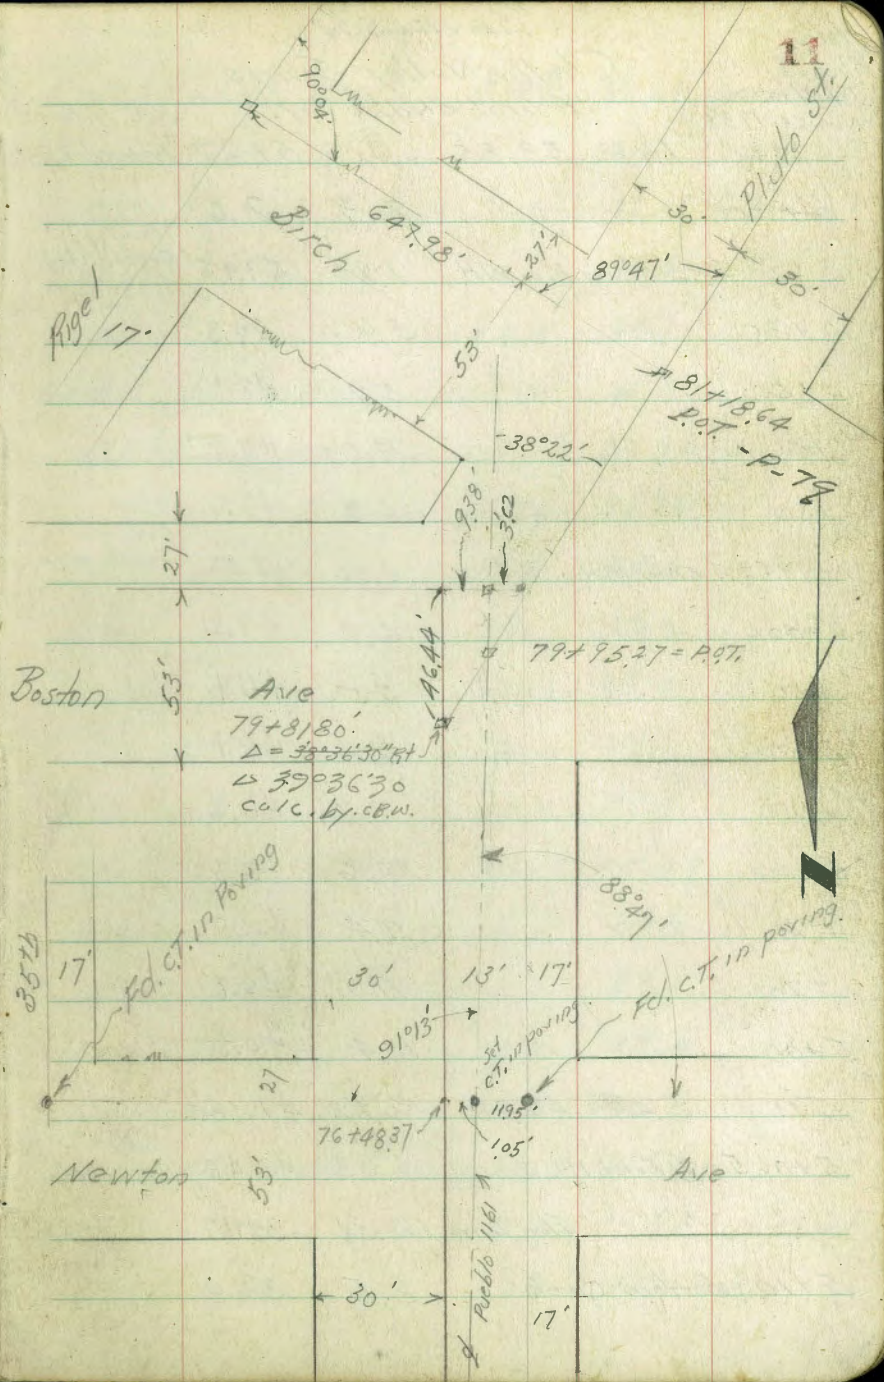 11
Pluto St.
90°04'
Birch
647.98'
27'
30'
89°47'
30'
Rigel
17'
53'
81+18.64
P.O.T. - P-79
38°22'
9.38'
3.02
27'
46.44'
79+95.27 = P.O.T.
Boston
53'
Ave
79+81.80
Δ = 38°36'30" Rt
Δ 39°36'30
calc. by. C.B.W.
N
88°47'
35th
17'
Fd. C.T. in Paving
30'
13'
17'
Fd. C.T. in paving.
91°13'
Set
C.T. in paving.
27
11.95'
76+48.37
1.05'
Newton
53'
Ave
Pueblo 1161
30'
17'